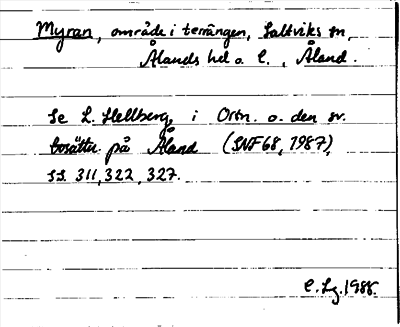 Myran, område i terrängen, Saltviks sn,
Ålands hd o. l., Åland.
Se L. Hellberg, i Ortn. o. den sv.
bosättn. på Åland (SNF 68, 1987),
ss. 311, 322, 327.
C. Lg. 1988.